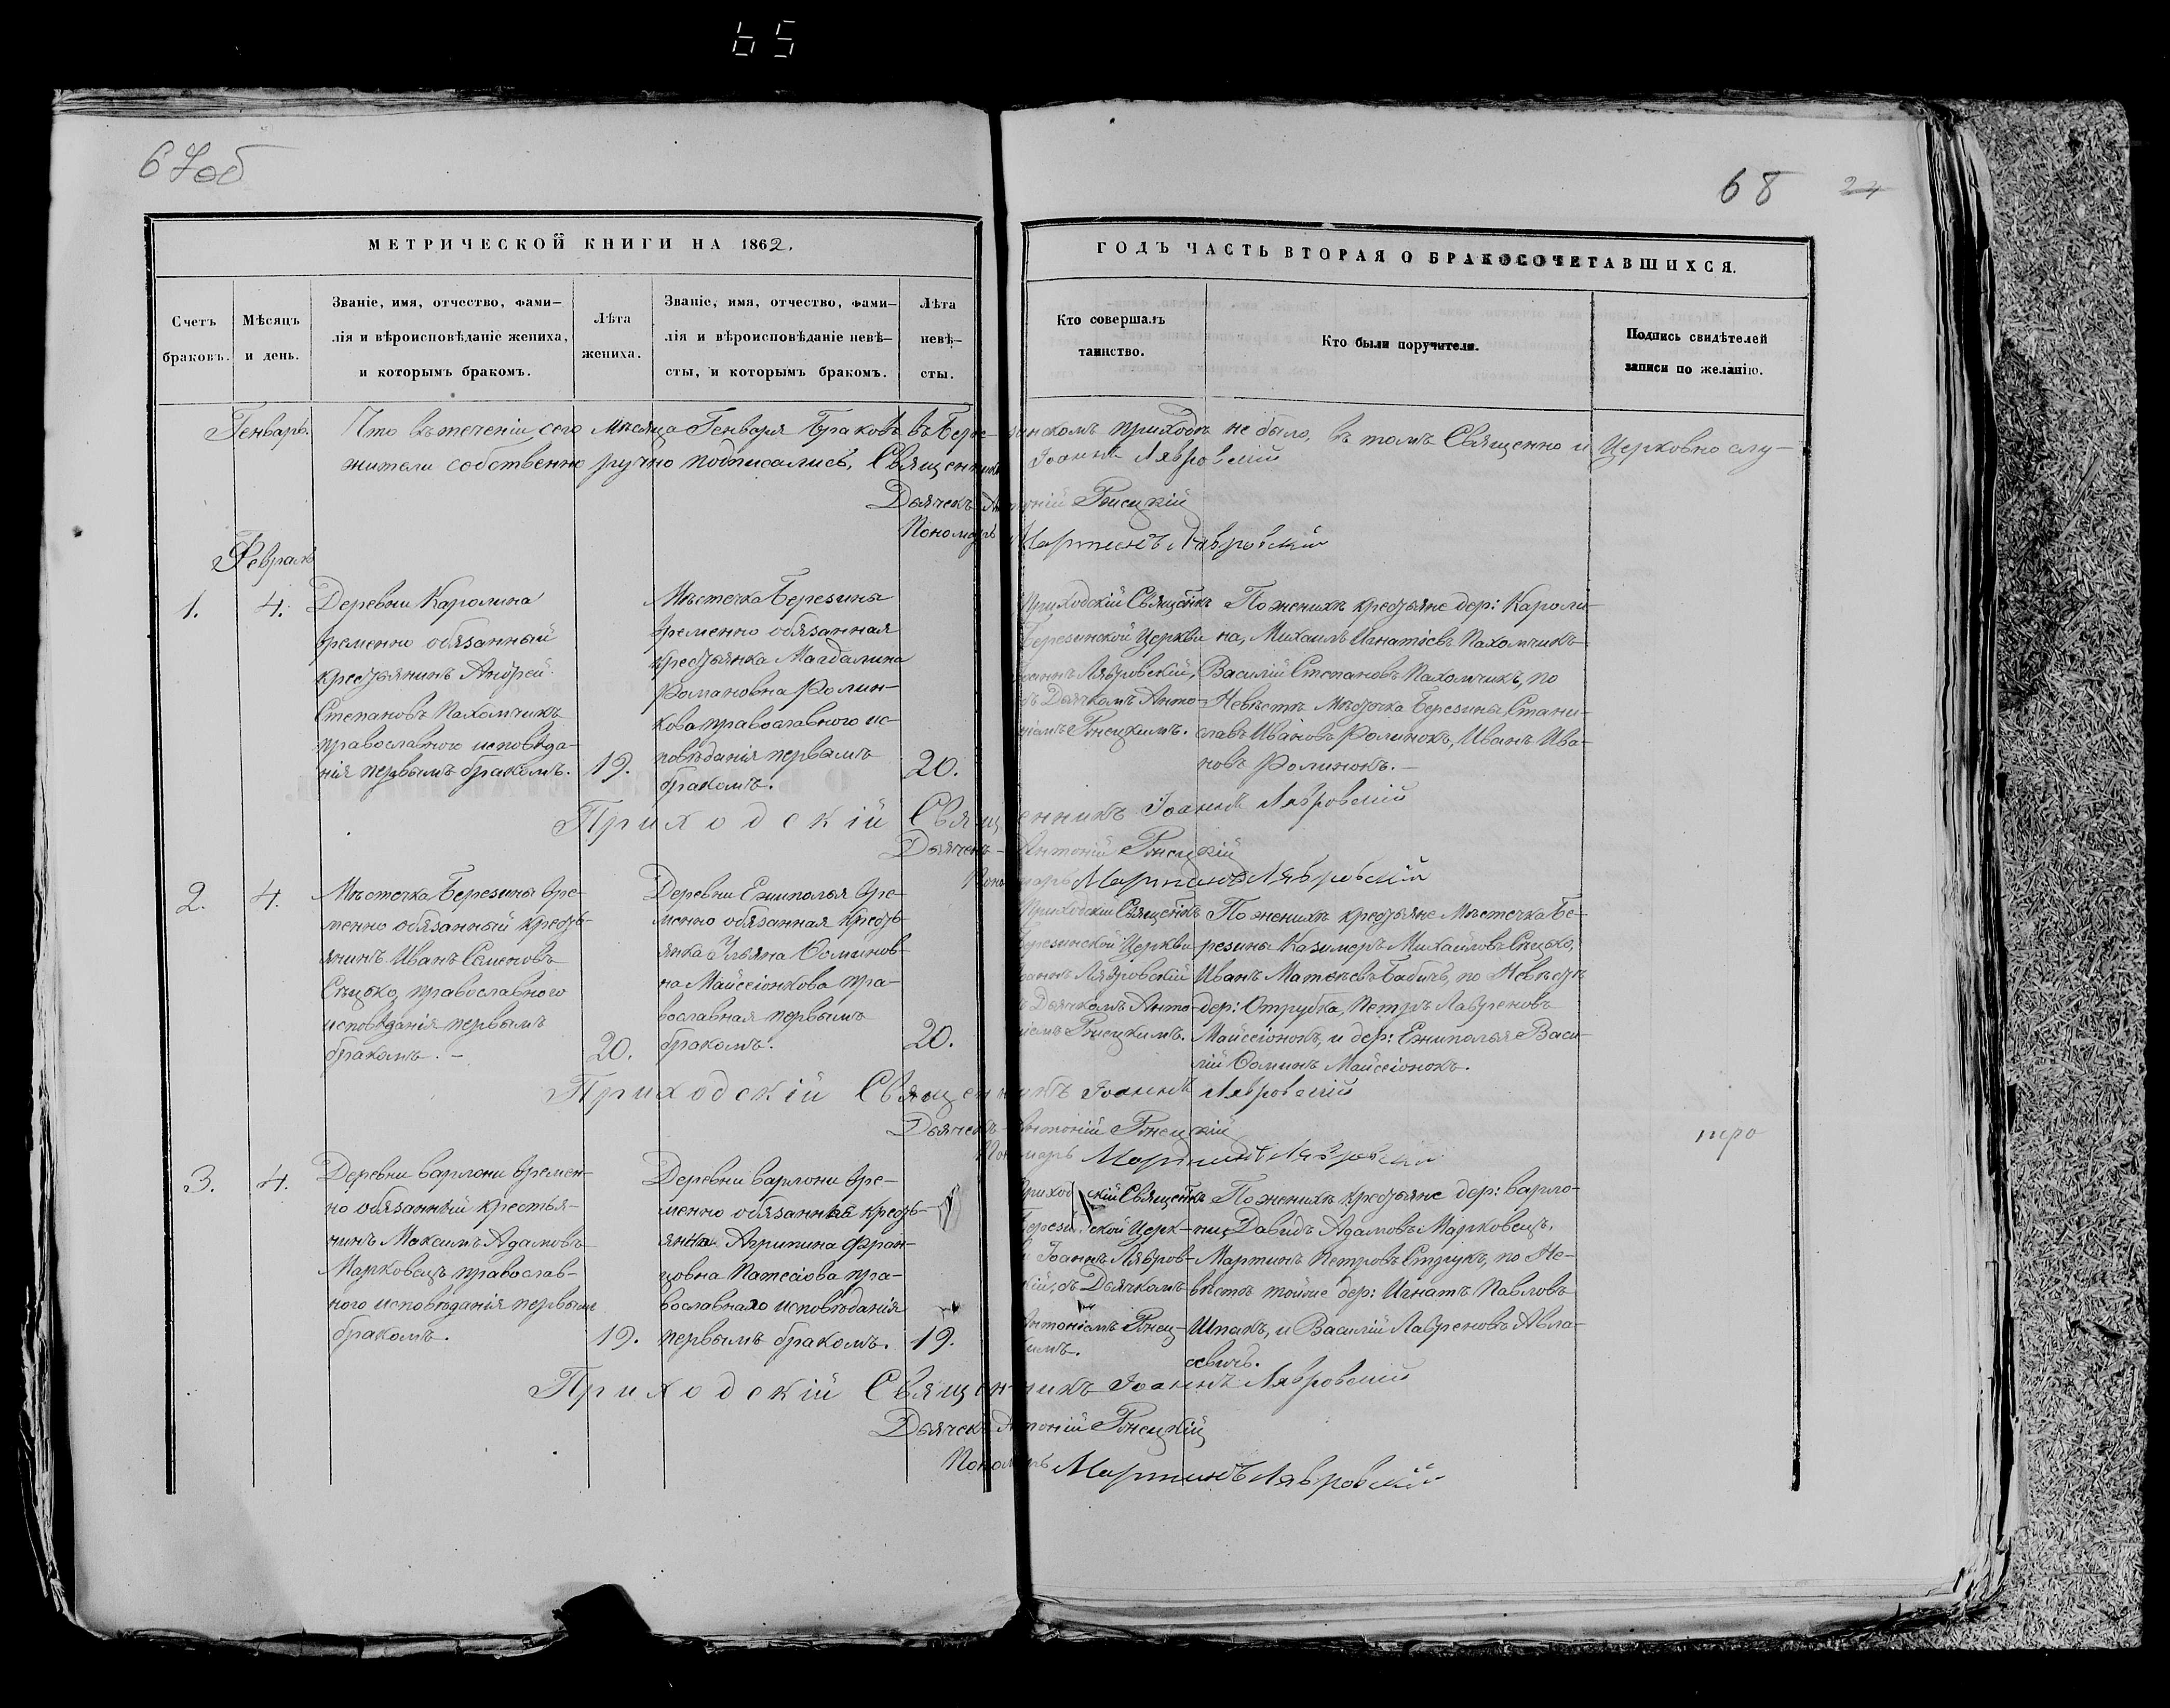 65
67об
68
24
МЕТРИЧЕСКОЙ КНИГИ НА 1862.
ГОДЪ ЧАСТЬ ВТОРАЯ О БРАКОСОЧЕТАВШИХСЯ.
Счетъ браковъ.
Мѣсяцъ и день.
Званіе, имя, отчество, фами-
лія и вѣроисповѣданіе жениха,
и которымъ бракомъ.
Лѣта
жениха.
Званіе, имя, отчество, фами-
лія и вѣроисповѣданіе невѣ-
сты, и которымъ бракомъ.
Лѣта
невѣ-
сты.
Кто совершалъ
таинство.
Кто были поручители.
Подпись свидѣтелей
записи по желанію.
Генварь. Что въ теченіи сего мѣсяца Генваря Браковъ въ Бере-зинскомъ приходѣ не было, въ томъ Священно и Церковно слу-
жители собственно ручно подписались, Священникъ Іоаннъ Лявровскій
Дьячекъ Антоній
Пономарь Мартинъ Лявровскій
Февраль
1.
4.
Деревни Каролина
временно обязанный
крестьянинъ Андрей
Степановъ Пахомчикъ
православного исповѣда-
нія первымъ бракомъ.
19.
Мѣстечка Березины
временно обязанная
крестьянка Магдалина
Романовна Ролин-
кова православного ис-
повѣданія первымъ
бракомъ.
20.
Приходскій Священ̃икъ
Березинской Церкви
Іоаннъ Лявровскій,
съ Дьячкомъ Анто-
ніемъ
По женихѣ крестьяне дер: Кароли-
на, Михаилъ Игнатіевъ Пахомчикъ
Василій Степановъ Пахомчикъ, по
Невѣстѣ Мѣстечка Березины, Стани-
славъ Ивановъ Ролинокъ, Иванъ Ива-
новъ Ролинокъ.
Приходскій Священникъ Іоаннъ Лявровскій
Дьячекъ Антоній
Пономарь Мартинъ Лявровскій
2.
4.
Мѣстечка Березины вре-
менно обязанный кресть-
янинъ Иванъ Семеновъ
Сѣцько, православного
исповѣданія первымъ
бракомъ.
20.
Деревни Ежиполья вре-
менно обязанная кресть-
янка Ульяна Фоминов-
на Майсеіонкова пра-
вославная первымъ
бракомъ.
20.
Приходскій Священ̃икъ
Березинской Церкви
Іоаннъ Лявровскій
съ Дьячкомъ Анто-
ніемъ
По женихѣ крестьяне Мѣстечка Бе-
резины Казимеръ Михайловъ Сѣцько,
Иванъ Матвѣевъ Бабичъ, по Невѣстѣ
дер: Отрубка, Петръ Лавреновъ
Майсеіонокъ, и дер: Ежиполья Васи-
лій Фоминъ Майсеіонокъ.
Приходскій Священникъ Іоаннъ Лявровскій
Дьячекъ Антоній
Пономарь Мартинъ Лявровскій
3.
4.
Деревни времен-
но обязанный крестья-
нинъ Максимъ Адамовъ
Марковецъ православ-
ного исповѣданія первымъ
бракомъ.
19.
Деревни вре-
менно обязанная кресть-
янка Агрипина Фран-
цовна пра-
вославнаго исповѣданія
первымъ бракомъ.
19.
Приходскій Священ̃икъ
Березинской Церк-
Іоаннъ Лявров-
скій, съ Дьячкомъ
Антоніемъ
По женихѣ крестьяне дер:
Давидъ Адамовъ Марковецъ,
Мартинъ Петровъ Струкъ, по Не-
вѣстѣ тойже дер: Игнатъ Павловъ
Шпакъ, и Василій Лавреновъ Авла-
севичъ.
Приходскій Священникъ Іоаннъ Лявровскій
Дьячекъ Антоній
Пономарь Мартинъ Лявровскій